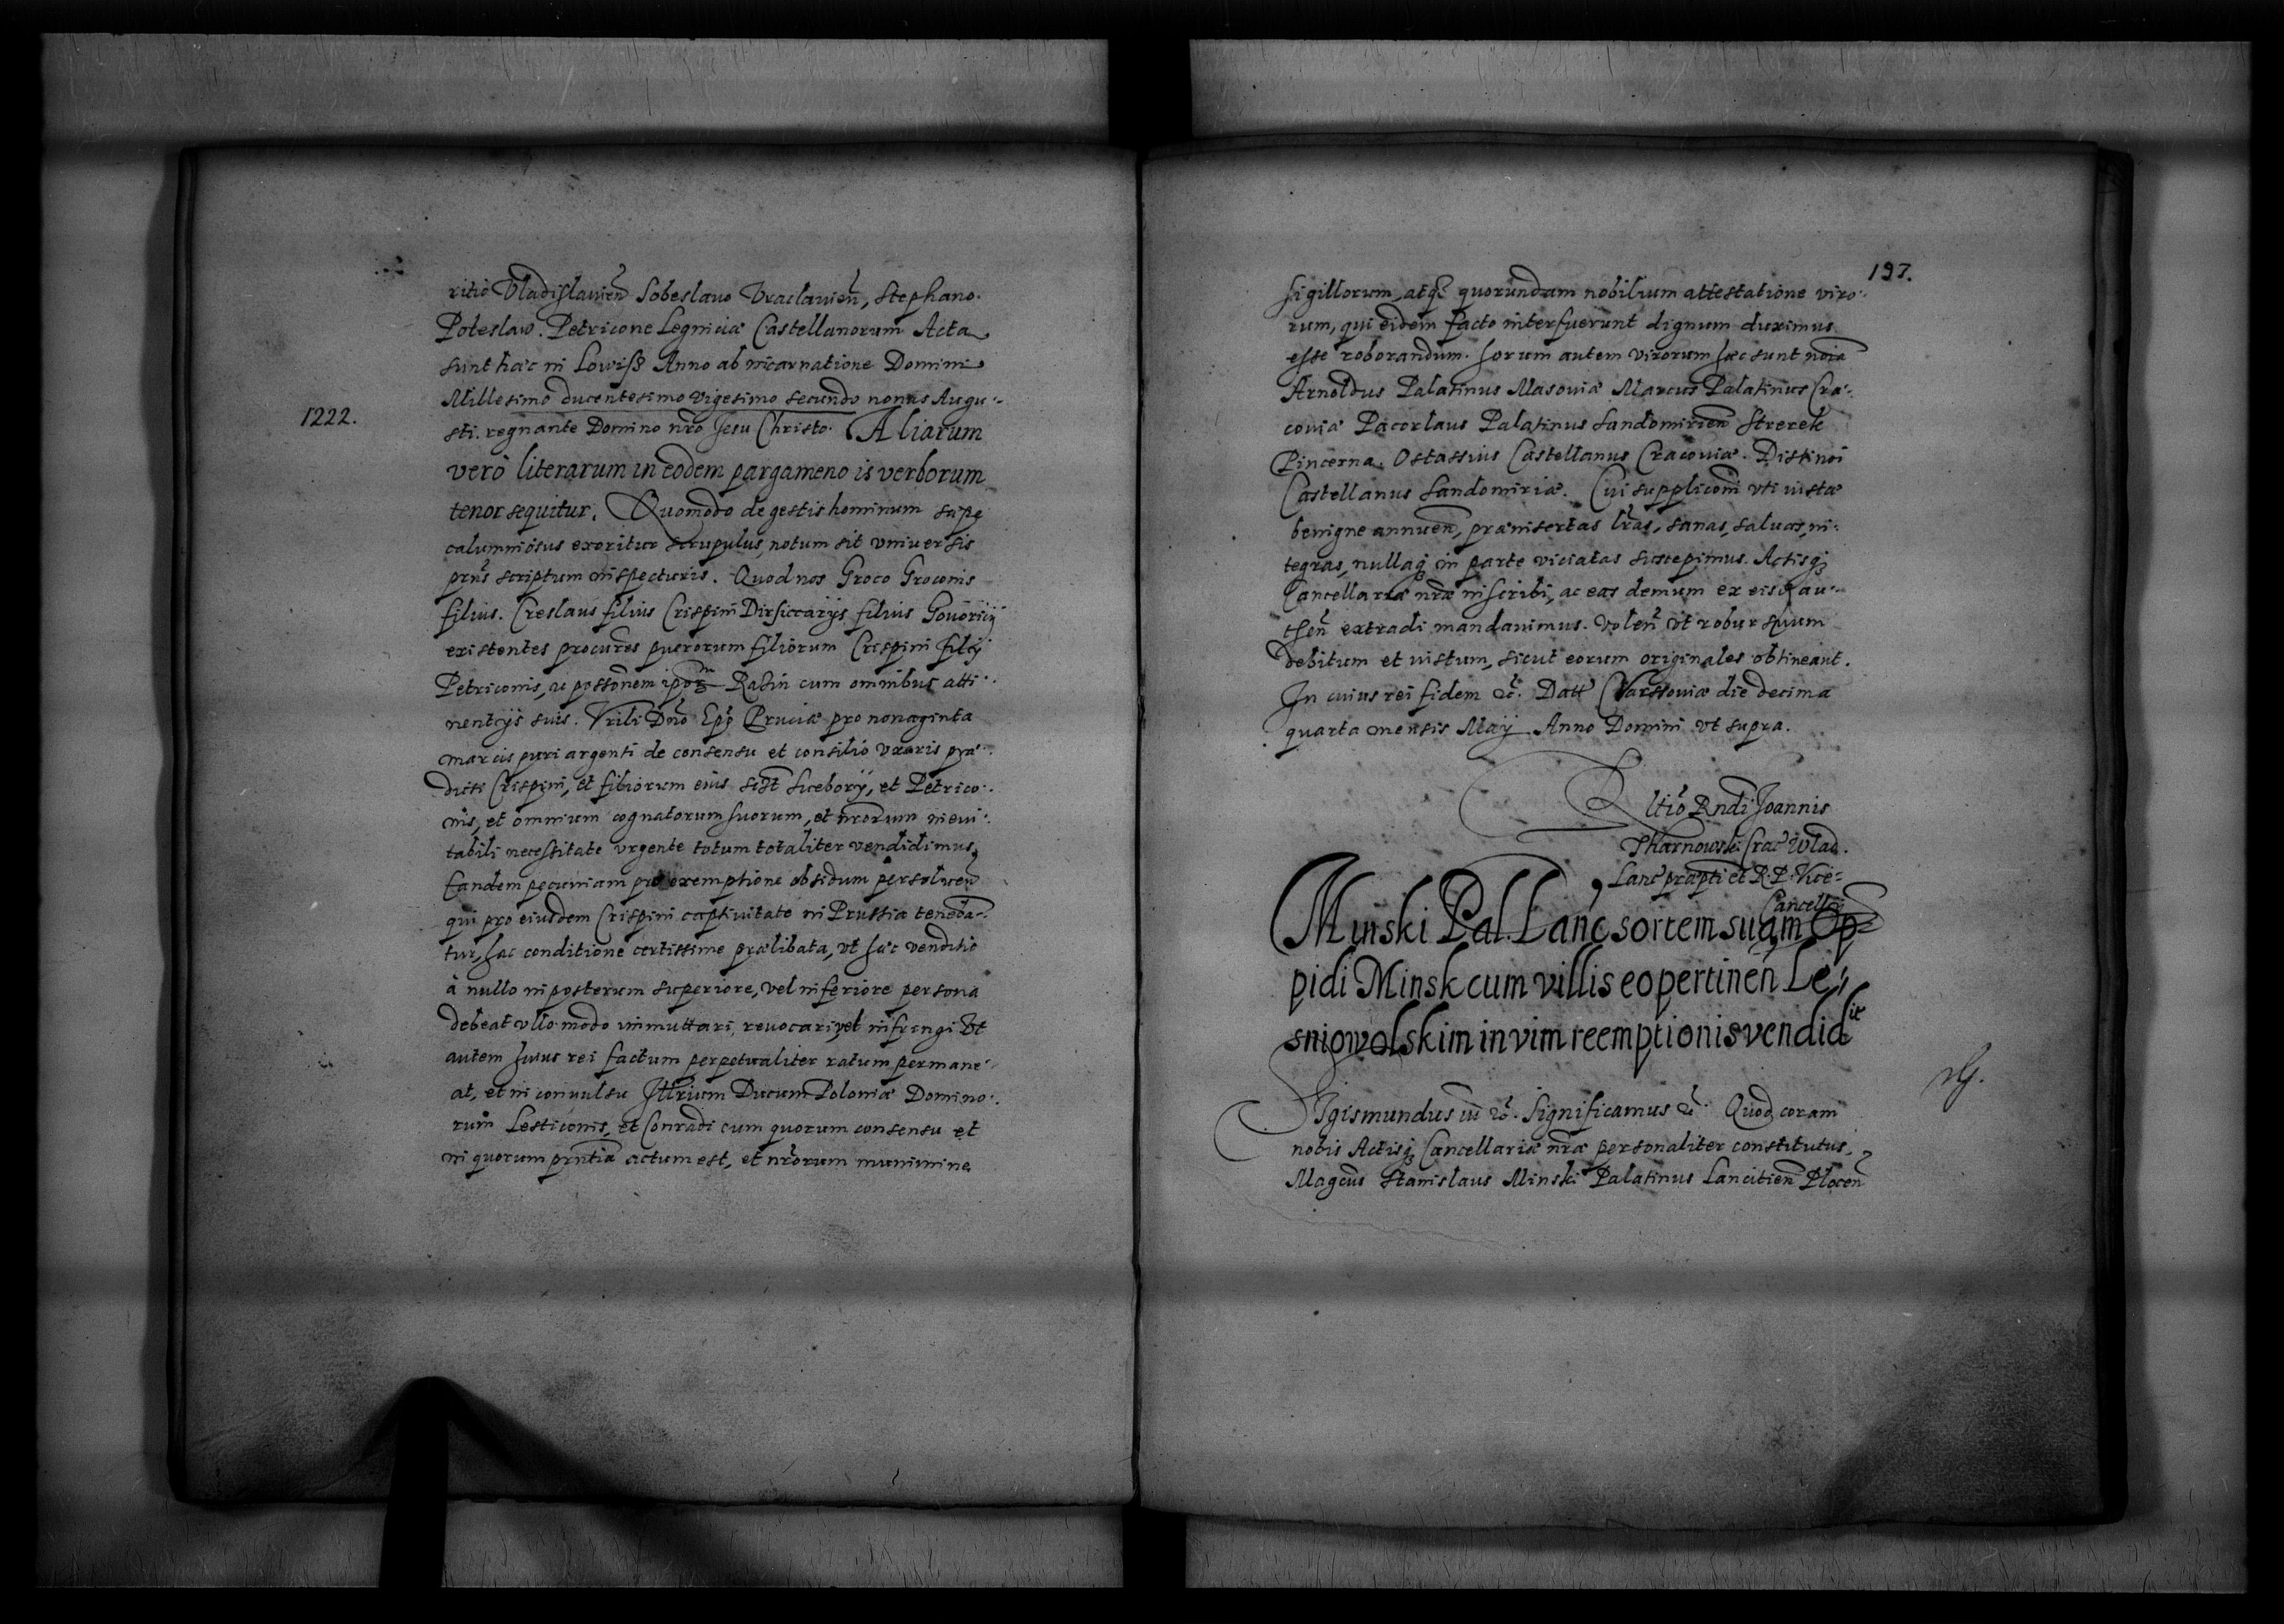 ritio Vladislavien̄ Sobeslauo Vraclauien̄, Stephano.
Poteslaw. Petricone Legniciæ Castellanorum Acta
sunt hæc in Lowisz Anno ab incarnatione Domini
Millesimo ducentesimo vigesimo secundo nonas Augu-
1222.
sti. regnante Domino nr̄o Jesu Christo. Aliarum
verò literarum in eodem pargameno is verborum
tenor sequitur. Quomodo de gestis hominum sæpe
calumniosus exoritur scrupulus, notum sit vniuersis
prn̄s scriptum inspecturis. Quod nos Groco Groconis
filius. Creslaus filius Crispini Dirsiccarÿs filius Gouoricÿ
existentes procur̄es puerorum filiorum Crispini filÿ
Petriconis, ac possōnem Razin cum omnibus atti-
nentÿs suis. Vrili Dn̄o Epō Pruciæ pro nonaginta
marcis puri argenti de consensu et consilio vxoris præ-
dicti Crispini, et filiorum eius Sicebory, et Petrico-
nis, et omnium cognatorum suorum, et nr̄orum ineui-
tabili necessitate vrgente totum totaliter vendidimus,
Eandem pecuniam pro exemptione obsidum persoluen̄
qui pro eiusdem Crispini captiuitate in Prussia teneba-
tur, hac conditione certissime prælibata, vt hæc venditio
à nullo in posterum superiore, vel inferiore persona
debeat vllo modo immuttari, reuocari, vel infringi Vt
autem huius rei factum perpetualiter ratum permane-
at, et in conuulsu Illrium Ducum Poloniæ Domino-
rum Lesticonis, et Conradi cum quorum consensu et
in quorum prn̄tia actum est, et nr̄orum munimine
197.
sigillorum, atq̄ quorundam nobilium attestatione viro-
rum, qui eidem facto interfuerunt dignum duximus
esse roborandum. horum autem virorum hæc sunt noīa
Arnoldus Palatinus Masouiæ Marcus Palatinus Cra-
couiæ Pacorlaus Palatinus Sandomirien̄ Strerek
Pincerna. Ostassius Castellanus Cracouiæ. Distinoi
Castellanus Sandomiriæ. Cui supplicōni vti iustæ
benigne annuen̄, præinsertas lr̄as, sanas, saluas, in-
tegras, nullaq; in parte viciatas suscepimus. Actisq;
Cancellariæ nr̄æ inscribi, ac eas demum ex eisd au-
then̄ extradi mandauimus. Volen̄ vt robur suum
debitum et iustum, sicut eorum originales obtineant.
In cuius rei fidem &c̄. Datt Varssouiæ die decima
quarta mensis Maÿ Anno Domini vt supra.
Rltio Rndi Joannis
Tharnowski Crac Wlad.
Lanc præpti et R. P. Vice-
Cancellrÿ
Minski Pal. Lanc sortem suam Op-
pidi Minsk cum villis eo pertinen̄ Le-
sniowolskim in vim reemptionis vendidit
Sigismundus iii &c̄. Significamus &c̄. Quod coram
nobis Actisq; Cancellariæ nr̄æ personaliter constitutus
Magcūs Stanislaus Minski Palatinus Lancitien̄ Plocen̄